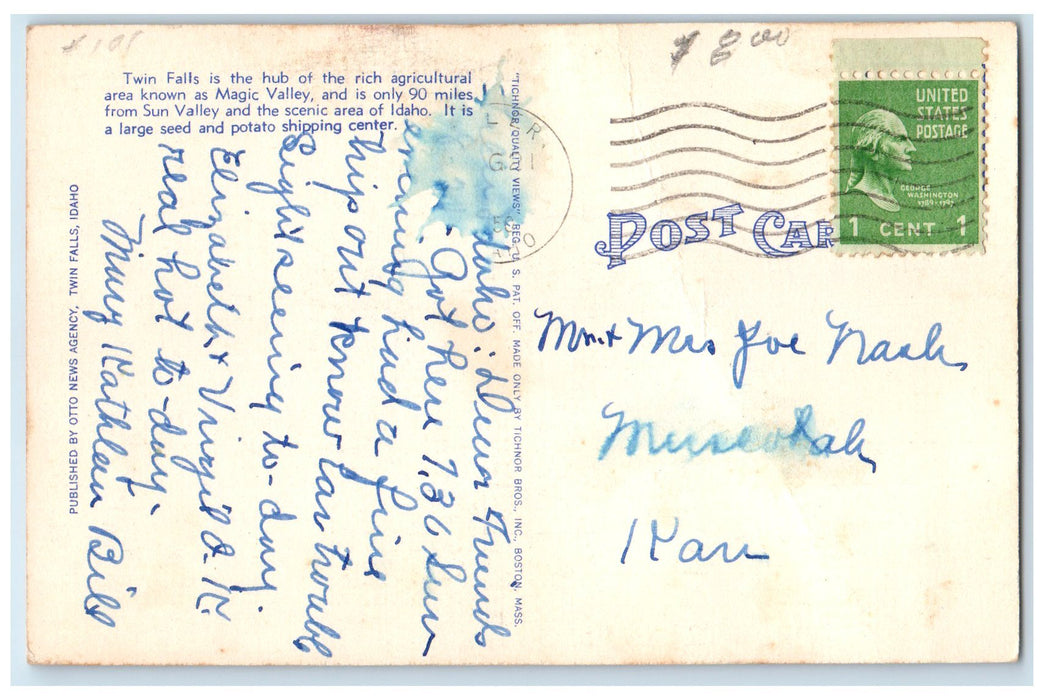 # 101
$ 8.00
Twin Falls is the hub of the rich agricultural
area known as Magic Valley, and is only 90 miles
from Sun Valley and the scenic area of Idaho. It is
a large seed and potato shipping center.
PUBLISHED BY OTTO NEWS AGENCY, TWIN FALLS, IDAHO
"TICHNOR QUALITY VIEWS" REG. U. S. PAT. OFF. MADE ONLY BY TICHNOR BROS., INC., BOSTON, MASS.
POST CAR
UNITED
STATES
POSTAGE
GEORGE
WASHINGTON
1789-1797
1 CENT 1
Idaho: Dear Friends
Got here 7.30 Sun
evening had a fine
trip out know car trouble
Sight seeing to-day.
Elizabeth + Virgil O.K.
real hot to-day.
Mary Kathleen Bill
Mr. + Mrs Joe Nash
Muscotah
Kan